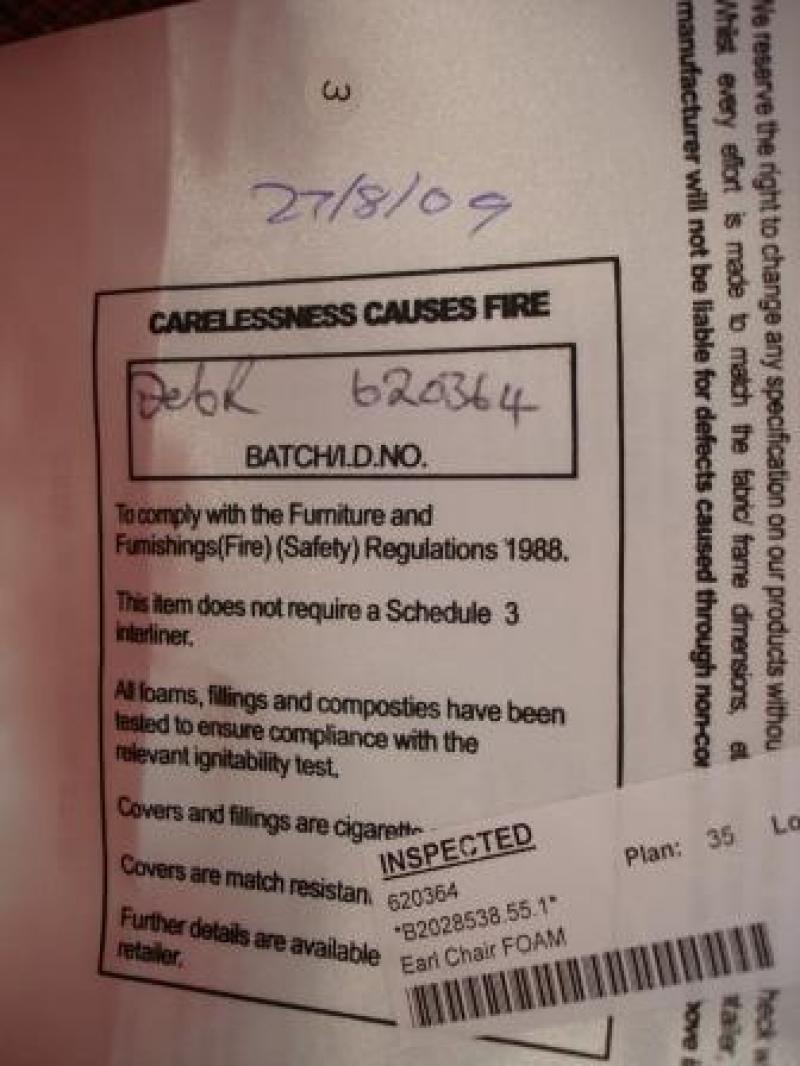 3
27/8/09
CARELESSNESS CAUSES FIRE
620364
BATCH/I.D.NO.
To comply with the Furniture and
Furnishings(Fire) (Safety) Regulations 1988.
This item does not require a Schedule 3
interliner.
All foams, fillings and composties have been
tested to ensure compliance with the
relevant ignitability test.
Covers and fillings are cigarette
Covers are match resistan
Further details are available
retailer.
INSPECTED
620364
*B2028538.55.1*
Earl Chair FOAM
Plan: 35 Lo
We reserve the right to change any specification on our products withou
Whilst every effort is made to match the fabric/ frame dimensions, et
manufacturer will not be liable for defects caused through non-cor